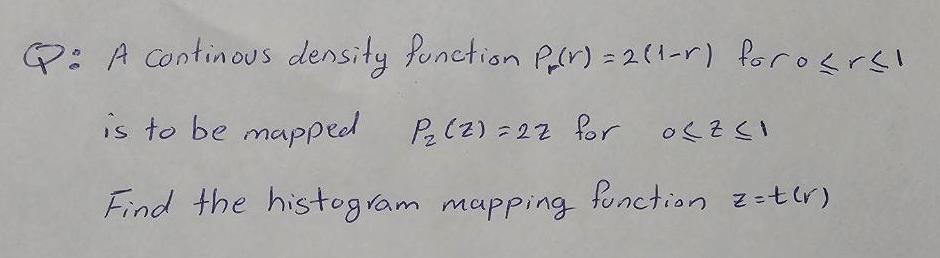 Q: A continous density function Pr(r) = 2(1-r) for 0 ≤ r ≤ 1
is to be mapped Pz(z) = 2z for 0 ≤ z ≤ 1
Find the histogram mapping function z = t(r)